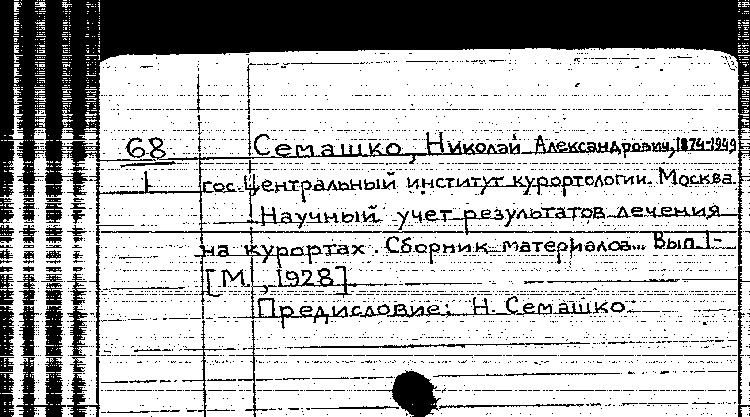 68 Семашко, Николай Александрович, 1874-1949
1 гос. Центральный институт курортологии. Москва.
Научный учет результатов лечения
на курортах. Сборник материалов... Вып. 1-
[М., 1928].
Предисловие: Н. Семашко.